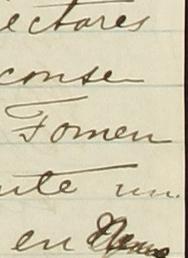 ectares
conse
Fomen
ute un
en